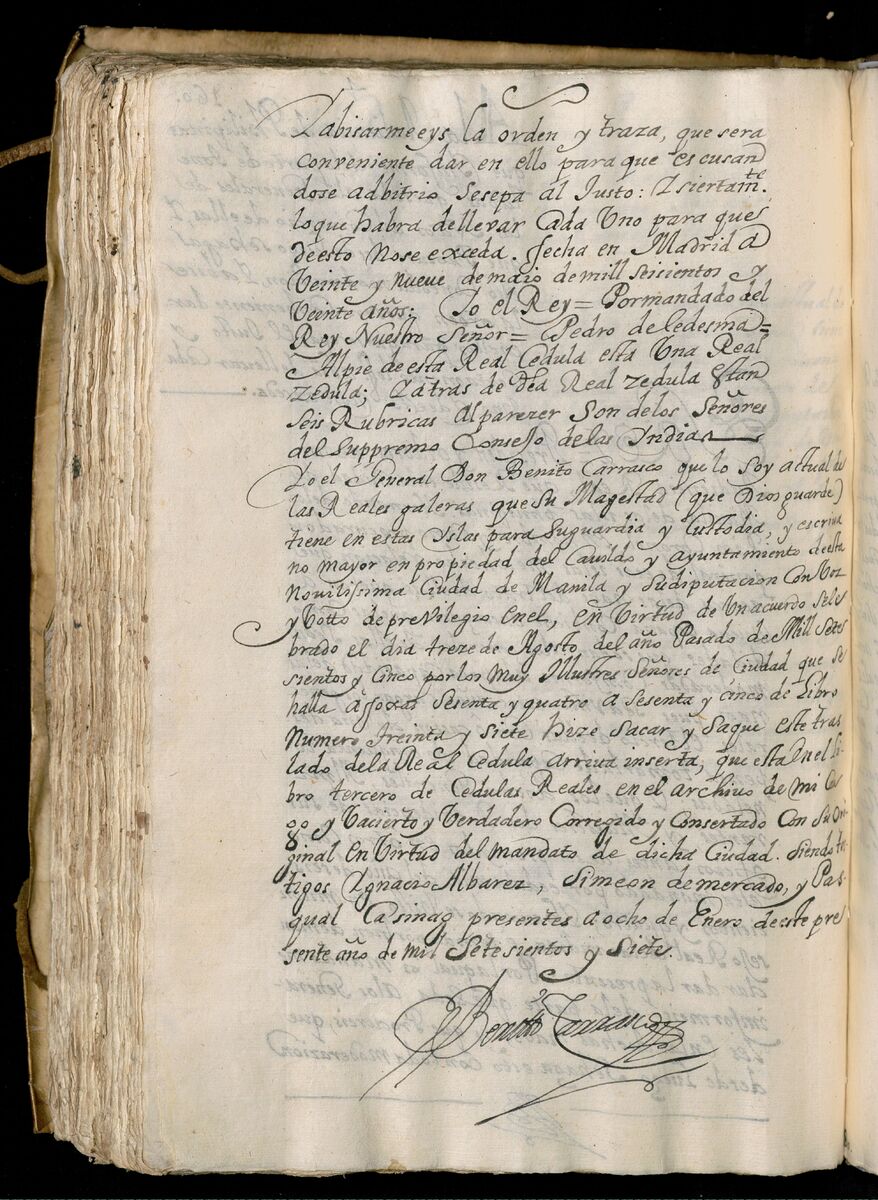 Yabisarmeeys la orden y traza, que sera
conveniente dar en ello para que escusan
dose adbitrio sesepa al Justo: Y siertamte.
loque habra dellevar Cada Uno para que
deesto nose exceda. fecha en Madrid a
Veinte y nueve demaio demill seiscientos y
Veinte años: Yo el Rey = Pormandado del
Rey Nuestro Señor = Pedro de ledesma =
Alpie de esta Real Cedula esta Una Real
Zedula; Yatras de dha Real zedula estan
seis Rubricas Alparezer Son delos Señores
del Suppremo Consejo de las Indias
Yo el General Don Benito Carrasco que lo soy actual de
las Reales galeras que Su Magestad (que Dios guarde)
tiene en estas Yslas para Suguardia y Custodia, y escriva
no mayor en propiedad del Cavildo y ayuntamiento de esta
Novilissima Ciudad de Manila y Sudiputacion Con Voz
y Votto de preVilegio enel, en Virtud de Un acuerdo sele
brado el dia treze de Agosto, del año Pasado de Mill Sete
sientos y Cinco por los muy Illustres Señores de Ciudad que se
halla a foxas Sesenta y quatro a sesenta y cinco de Libro
Numero treinta y siete hize Sacar y Saque este tras
lado dela Real Cedula arriva inserta, que esta Enel li
bro tercero de Cedulas Reales en el archivo de mi Car
go y Vacierto y Verdadero Corregido y Consertado Con su Ori
ginal En Virtud del mandato de dicha Ciudad. siendo tes
tigos Ygnacio Albarez, Simeon de mercado, y Pas
qual Casinag presentes a ocho de Enero deeste pre
sente año de mil Sete sientos y Siete.
Benito Carrasco